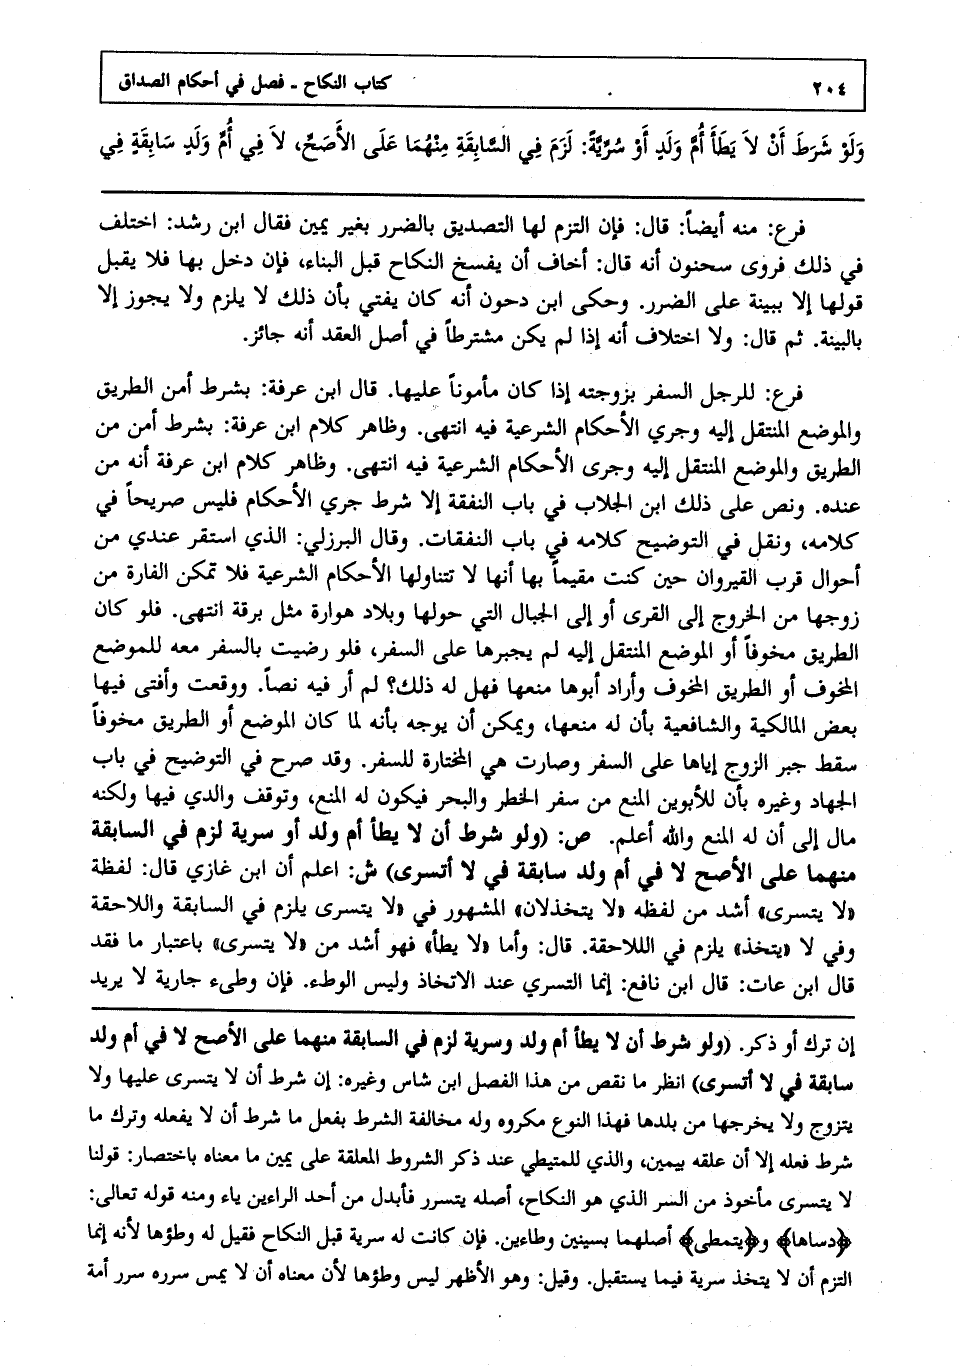 ٢٠٤ كتاب النكاح ـ فصل في أحكام الصداق
وَلَوْ شَرَطَ أَنْ لاَ يَطَأَ أُمَّ وَلَدٍ أَوْ سُرِّيَّةً: لَزِمَ فِي السَّابِقَةِ مِنْهُمَا عَلَى الأَصَحِّ، لاَ فِي أُمِّ وَلَدٍ سَابِقَةٍ فِي
فرع: منه أيضاً: قال: فإن التزم لها التصديق بالضرر بغير يمين فقال ابن رشد: اختلف
في ذلك فروى سحنون أنه قال: أخاف أن يفسخ النكاح قبل البناء، فإن دخل بها فلا يقبل
قولها إلا ببينة على الضرر. وحكى ابن دحون أنه كان يفتي بأن ذلك لا يلزم ولا يجوز إلا
بالبينة. ثم قال: ولا اختلاف أنه إذا لم يكن مشترطاً في أصل العقد أنه جائز.
فرع: للرجل السفر بزوجته إذا كان مأموناً عليها. قال ابن عرفة: بشرط أمن الطريق
والموضع المنتقل إليه وجري الأحكام الشرعية فيه انتهى. وظاهر كلام ابن عرفة: بشرط أمن من
الطريق والموضع المنتقل إليه وجرى الأحكام الشرعية فيه انتهى. وظاهر كلام ابن عرفة أنه من
عنده. ونص على ذلك ابن الجلاب في باب النفقة إلا شرط جري الأحكام فليس صريحاً في
كلامه، ونقل في التوضيح كلامه في باب النفقات. وقال البرزلي: الذي استقر عندي من
أحوال قرب القيروان حين كنت مقيماً بها أنها لا تتناولها الأحكام الشرعية فلا تمكن الفارة من
زوجها من الخروج إلى القرى أو إلى الجبال التي حولها وبلاد هوارة مثل برقة انتهى. فلو كان
الطريق مخوفاً أو الموضع المنتقل إليه لم يجبرها على السفر، فلو رضيت بالسفر معه للموضع
المخوف أو الطريق المخوف وأراد أبوها منعها فهل له ذلك؟ لم أر فيه نصاً. ووقعت وأفتى فيها
بعض المالكية والشافعية بأن له منعها، ويمكن أن يوجه بأنه لما كان الموضع أو الطريق مخوفاً
سقط جبر الزوج إياها على السفر وصارت هي المختارة للسفر. وقد صرح في التوضيح في باب
الجهاد وغيره بأن للأبوين المنع من سفر الخطر والبحر فيكون له المنع، وتوقف والدي فيها ولكنه
مال إلى أن له المنع والله أعلم. ص: (ولو شرط أن لا يطأ أم ولد أو سرية لزم في السابقة
منهما على الأصح لا في أم ولد سابقة في لا أتسرى) ش: اعلم أن ابن غازي قال: لفظة
«لا يتسرى» أشد من لفظه «لا يتخذلان» المشهور في «لا يتسرى يلزم في السابقة واللاحقة
وفي لا «يتخذ» يلزم في اللاحقة. قال: وأما «لا يطأ» فهو أشد من «لا يتسرى» باعتبار ما فقد
قال ابن عات: قال ابن نافع: إنما التسري عند الاتخاذ وليس الوطء. فإن وطىء جارية لا يريد
إن ترك أو ذكر. (ولو شرط أن لا يطأ أم ولد وسرية لزم في السابقة منهما على الأصح لا في أم ولد
سابقة في لا أتسرى) انظر ما نقص من هذا الفصل ابن شاس وغيره: إن شرط أن لا يتسرى عليها ولا
يتزوج ولا يخرجها من بلدها فهذا النوع مكروه وله مخالفة الشرط بفعل ما شرط أن لا يفعله وترك ما
شرط فعله إلا أن علقه بيمين، والذي للمتيطي عند ذكر الشروط المعلقة على يمين ما معناه باختصار: قولنا
لا يتسرى مأخوذ من السر الذي هو النكاح، أصله يتسرر فأبدل من أحد الراءين ياء ومنه قوله تعالى:
﴿دساها﴾ و﴿يتمطى﴾ أصلهما بسينين وطاءين. فإن كانت له سرية قبل النكاح فقيل له وطؤها لأنه إنما
التزم أن لا يتخذ سرية فيما يستقبل. وقيل: وهو الأظهر ليس وطؤها لأن معناه أن لا يمس سرره سرر أمة